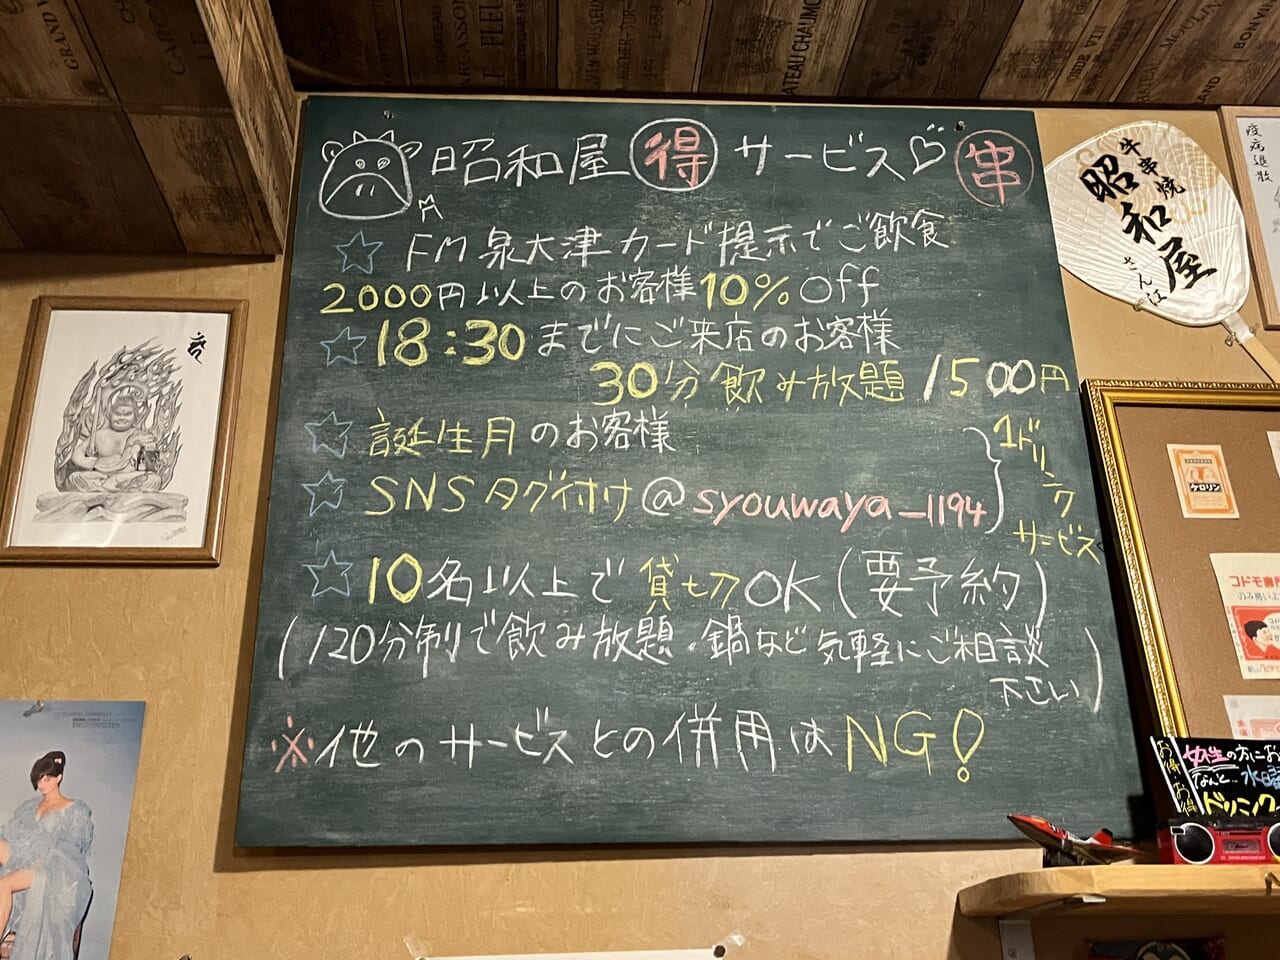 昭和屋 得 サービス♡ 串
☆ FM泉大津カード提示でご飲食
2000円以上のお客様10% Off
☆ 18:30までにご来店のお客様
30分飲み放題 1500円
☆ 誕生月のお客様
☆ SNSタグ付け@syouwaya_1194
1ドリンクサービス
☆ 10名以上で貸切OK(要予約)
(120分制で飲み放題・鍋など気軽にご相談
下さい)
※他のサービスとの併用はNG!
牛串焼
昭和屋
さん江
疫病退散
ケロリン
コドモ専門
女性の方にお
なんと…水曜
ドリンク
お得 お得